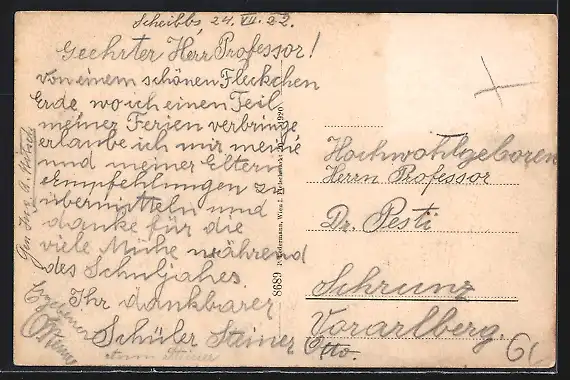 Scheibbs, 24. VII. 32.
Geehrter Herr Professor!
Von einem schönen Fleckchen
Erde wo ich einen Teil
meiner Ferien verbringe
erlaube ich mir meine
und meiner Eltern
Empfehlungen zu
übermitteln und
danke für die
viele Mühe während
des Schuljahes.
Ihr dankbarer
Schüler Steiner
Otto.
8689
Hochwohlgeboren
Herrn Professor
Dr. Pesti
Schrunz
Vorarlberg.